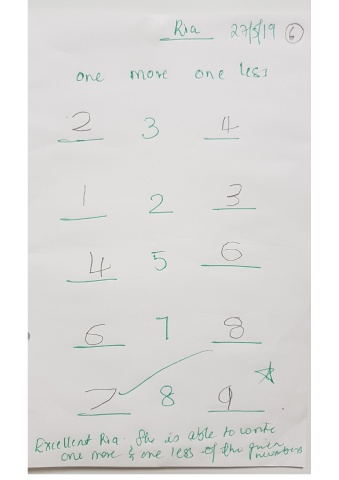 Ria 27/5/19 6
one more one less
2 3 4
1 2 3
4 5 6
6 7 8
7 8 9
Excellent Ria. She is able to write
one more & one less of the given
numbers